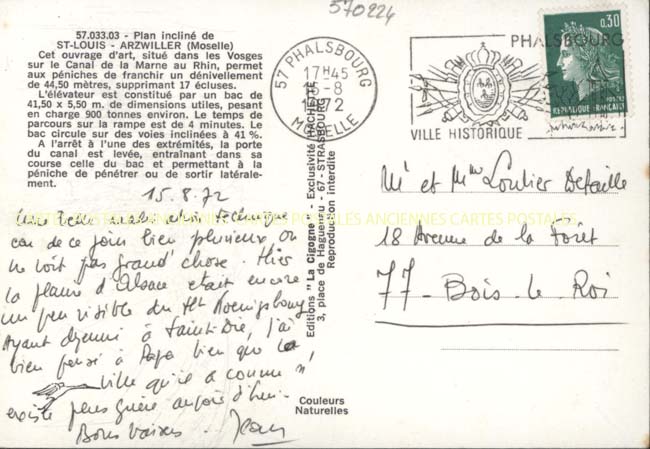 570224
57.033.03 - Plan incliné de
ST-LOUIS - ARZWILLER (Moselle)
Cet ouvrage d'art, situé dans les Vosges
sur le Canal de la Marne au Rhin, permet
aux péniches de franchir un dénivellement
de 44,50 mètres, supprimant 17 écluses.
L'élévateur est constitué par un bac de
41,50 x 5,50 m. de dimensions utiles, pesant
en charge 900 tonnes environ. Le temps de
parcours sur la rampe est de 4 minutes. Le
bac circule sur des voies inclinées à 41 %.
A l'arrêt à l'une des extrémités, la porte
du canal est levée, entraînant dans sa
course celle du bac et permettant à la
péniche de pénétrer ou de sortir latérale-
ment.
15.8.72
Une bien
car de ce jour bien pluvieux on
ne voit pas grand' chose. Hier
la plaine d'Alsace était encore
un peu visible du Ht Koenigsbourg
Ayant déjeuné à Saint-Dié, j'ai
bien pensé à Papa bien que la
ville qu'il a connue n'
existe plus guère aujourd'hui.
Bons baisers - Jean
Editions "La Cigogne" - Exclusivité HACHETTE
3, place de Haguenau - 67 - STRASBOURG
Reproduction interdite
Couleurs
Naturelles
57 PHALSBOURG
17H45
15-8
1972
MOSELLE
PHALSBOURG
VILLE HISTORIQUE
0,30
POSTES
REPUBLIQUE FRANÇAISE
Mr et Mme Loutier Detaille
18 Avenue de la Forêt
77 - Bois le Roi
CARTES POSTALES ANCIENNES CARTES POSTALES ANCIENNES CARTES POSTALES